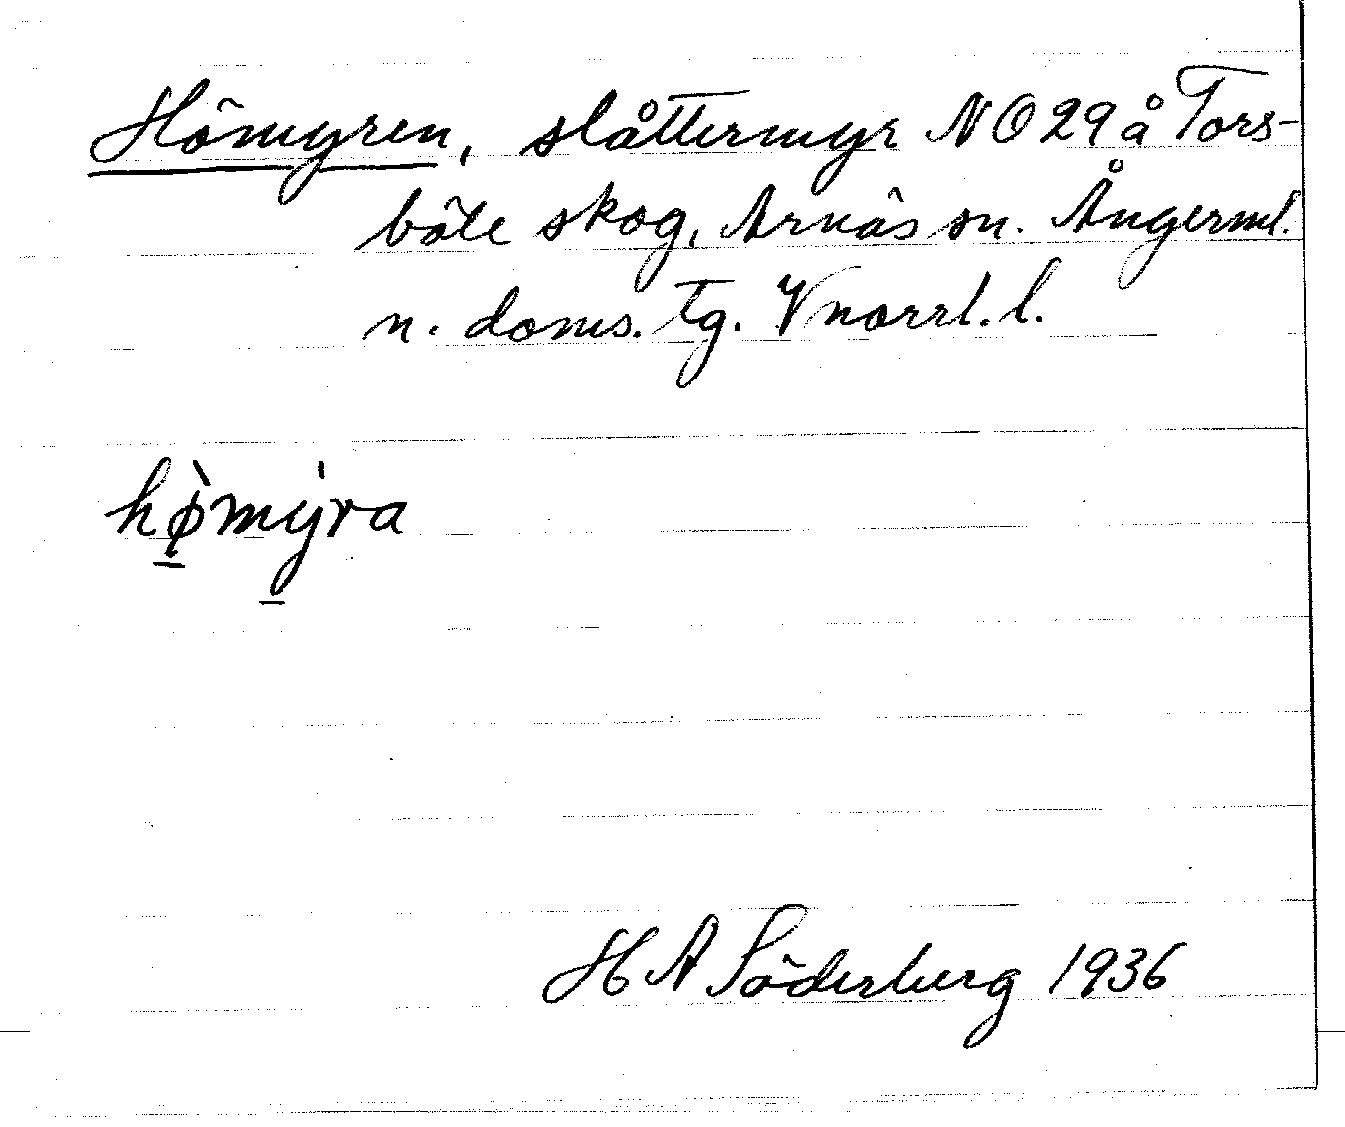 Hömyren, slåttermyr NO 29 å Tors-
böle skog, Arnäs sn. Ångerml.
n. doms. tg. Vnorrl. l.
hø̱̀my̱̍ra
H A Söderberg 1936